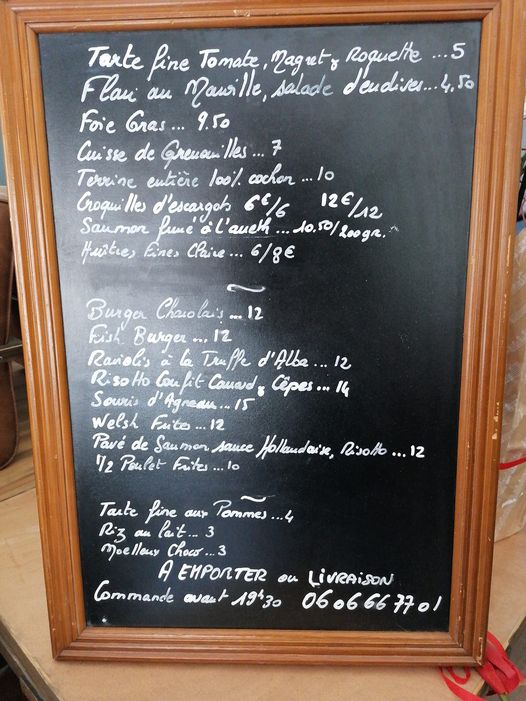 Tarte fine Tomate, Magret & Roquette ...5
Flan au Maroille, salade d'endives...4,50
Foie Gras... 9.50
Cuisse de Grenouilles...7
Terrine entière 100% cochon ...10
Croquilles d'escargots 6€/6 12€/12
Saumon fumé à l'aneth...10.50/200gr.
Huîtres Fines Claire... 6/8€
~
Burger Charolais...12
Fish Burger...12
Raviolis à la Truffe d'Alba...12
Risotto Confit Canard & Cêpes...14
Souris d'Agneau...15
Welsh Frites...12
Pavé de Saumon sauce Hollandaise, Risotto...12
1/2 Poulet Frites...10
~
Tarte fine aux Pommes...4
Riz au lait...3
Moelleux Choco...3
A EMPORTER ou LIVRAISON
Commande avant 19h30 06 06 66 77 01